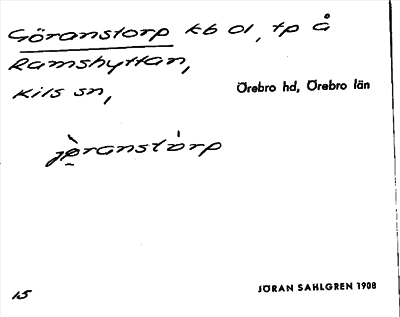 Göranstorp kb 01, tp å
Ramshyttan,
Kils sn,
Örebro hd, Örebro län
jö̀ranstòrp
15
JÖRAN SAHLGREN 1908